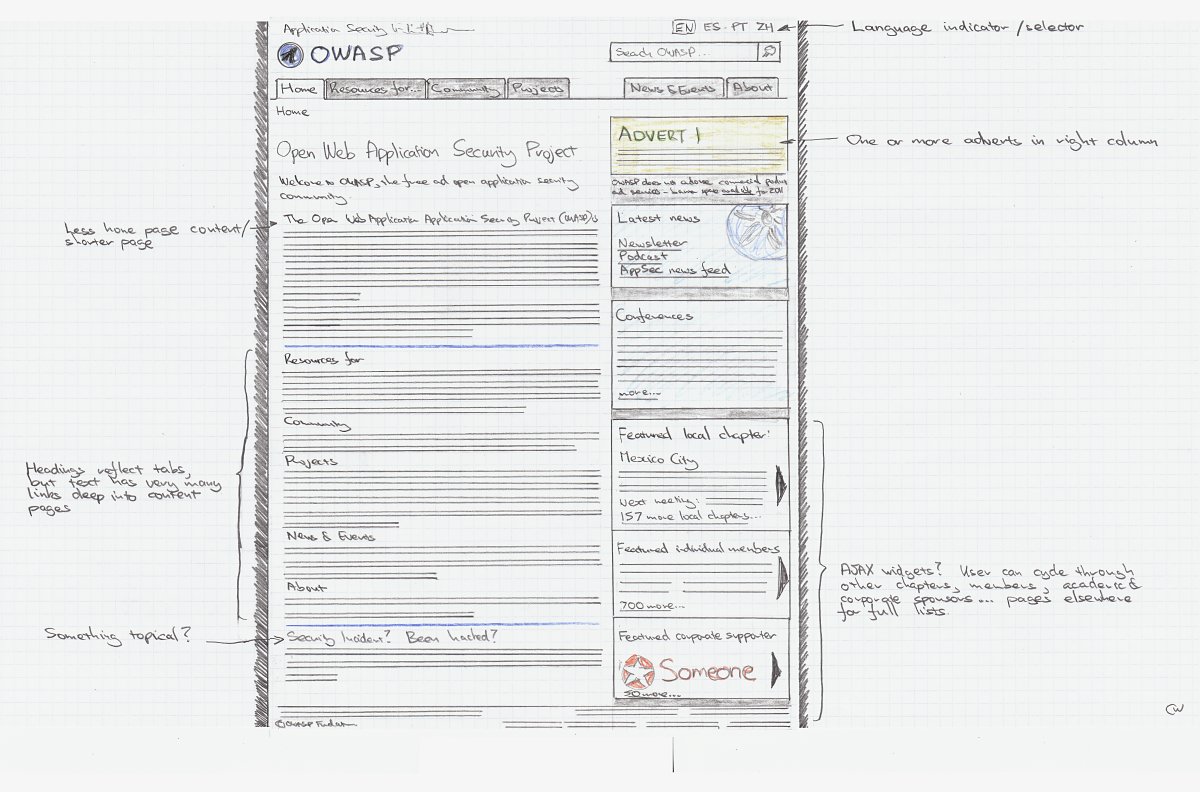 Application Security
EN ES · PT ZH
Language indicator/selector
OWASP
Search OWASP...
Home
Resources for...
Community
Projects
News & Events
About
Home
ADVERT 1
One or more adverts in right column
Open Web Application Security Project
Welcome to OWASP, the free ad open application security
community.
OWASP does not
for 2011
The Open Web Application Application Security Project (OWASP) is
Less home page content/
shorter page
Latest news
Newsletter
Podcast
AppSec news feed
Conferences
more...
Resources for
Community
Projects
News & Events
About
Headings reflect tabs,
but text has very many
links deep into content
pages
Featured local chapter:
Mexico City
Next meeting:
157 more local chapters...
Featured individual members
700 more...
AJAX widgets? User can cycle through
other chapters, members, academic &
corporate sponsors... pages elsewhere
for full lists.
Something topical?
Security Incident? Been hacked?
Featured corporate supporter
Someone
50 more...
©OWASP
CW